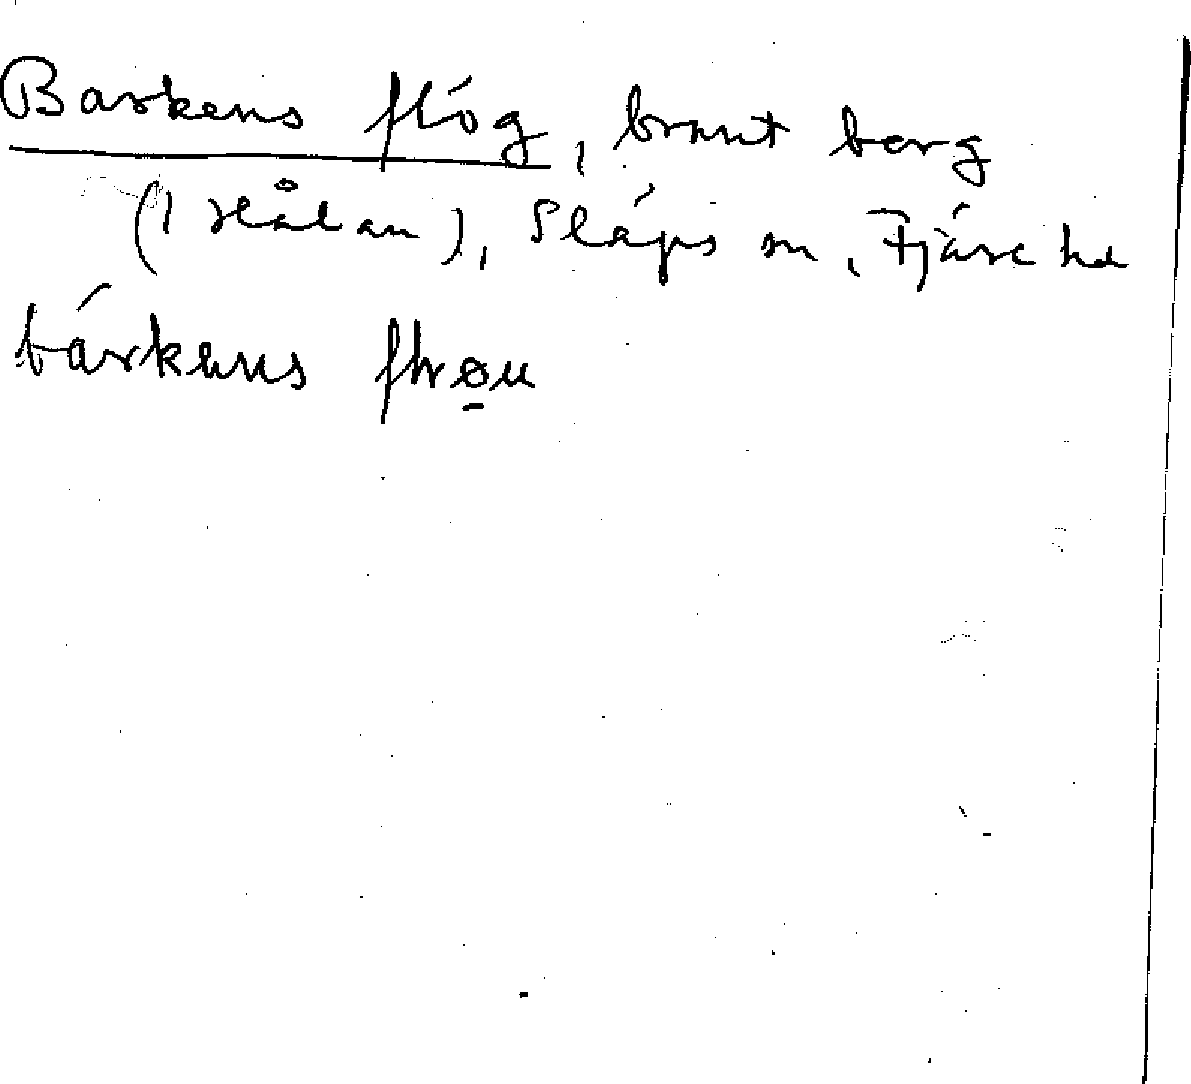 Barkens flóg, brant berg
(i skålan), Släps sn, Fjäre hd
bárkens